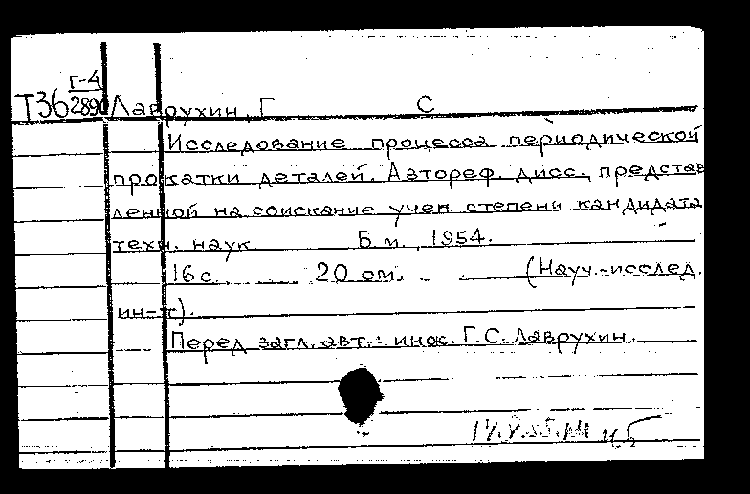 Г-4
Т36 2890 Лаврухин, Г С
Исследование процесса периодической
прокатки деталей. Автореф. дисс., представ
ленной на соискание учен степени кандидата
техн. наук Б м., 1954.
16 с. 20 см. (Науч.-исслед.
ин-т).
Перед загл. авт.: инж. Г. С. Лаврухин.